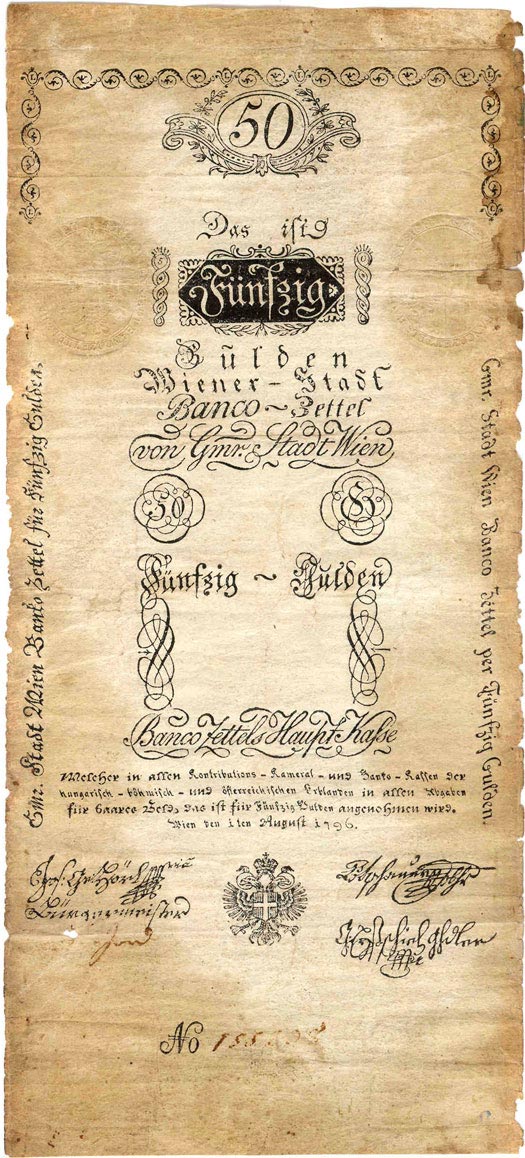 50
Das ist
Fünfzig
Gulden
Wiener-Stadt
Banco ~ Zettel
von Gmr. Stadt Wien
50 Gl
Fünfzig ~ Gulden
Banco Zettels Haupt-Kasse
Welcher in allen Kontributions-Kameral-und Banko-Kassen der
hungarisch-böhmisch-und österreichischen Erblanden in allen Abgaben
für baares Geld, das ist für Fünfzig Gulden angenohmen wird.
Wien den 1ten August 1796.
Gmr. Stadt Wien Banko Zettel für Fünfzig Gulden.
Gmr. Stadt Wien Banco Zettel per Fünfzig Gulden
Bürgermeister
No